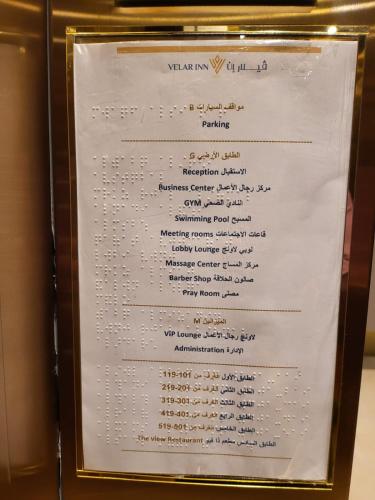 VELAR INN ڤيـــلار إن
مواقف السيارات B
Parking
الطابق الأرضي G
الاستقبال Reception
مركز رجال الأعمال Business Center
النادي الصحي GYM
المسبح Swimming Pool
قاعات الاجتماعات Meeting rooms
لوبي لاونج Lobby Lounge
مركز المساج Massage Center
صالون الحلاقة Barber Shop
مصلى Pray Room
الميزانين M
لاونج رجال الأعمال VIP Lounge
الإدارة Administration
الطابق الأول الغرف من 101-119
الطابق الثاني الغرف من 201-219
الطابق الثالث الغرف من 301-319
الطابق الرابع الغرف من 401-419
الطابق الخامس الغرف من 501-519
الطابق السادس مطعم ذا فيو The view Restaurant